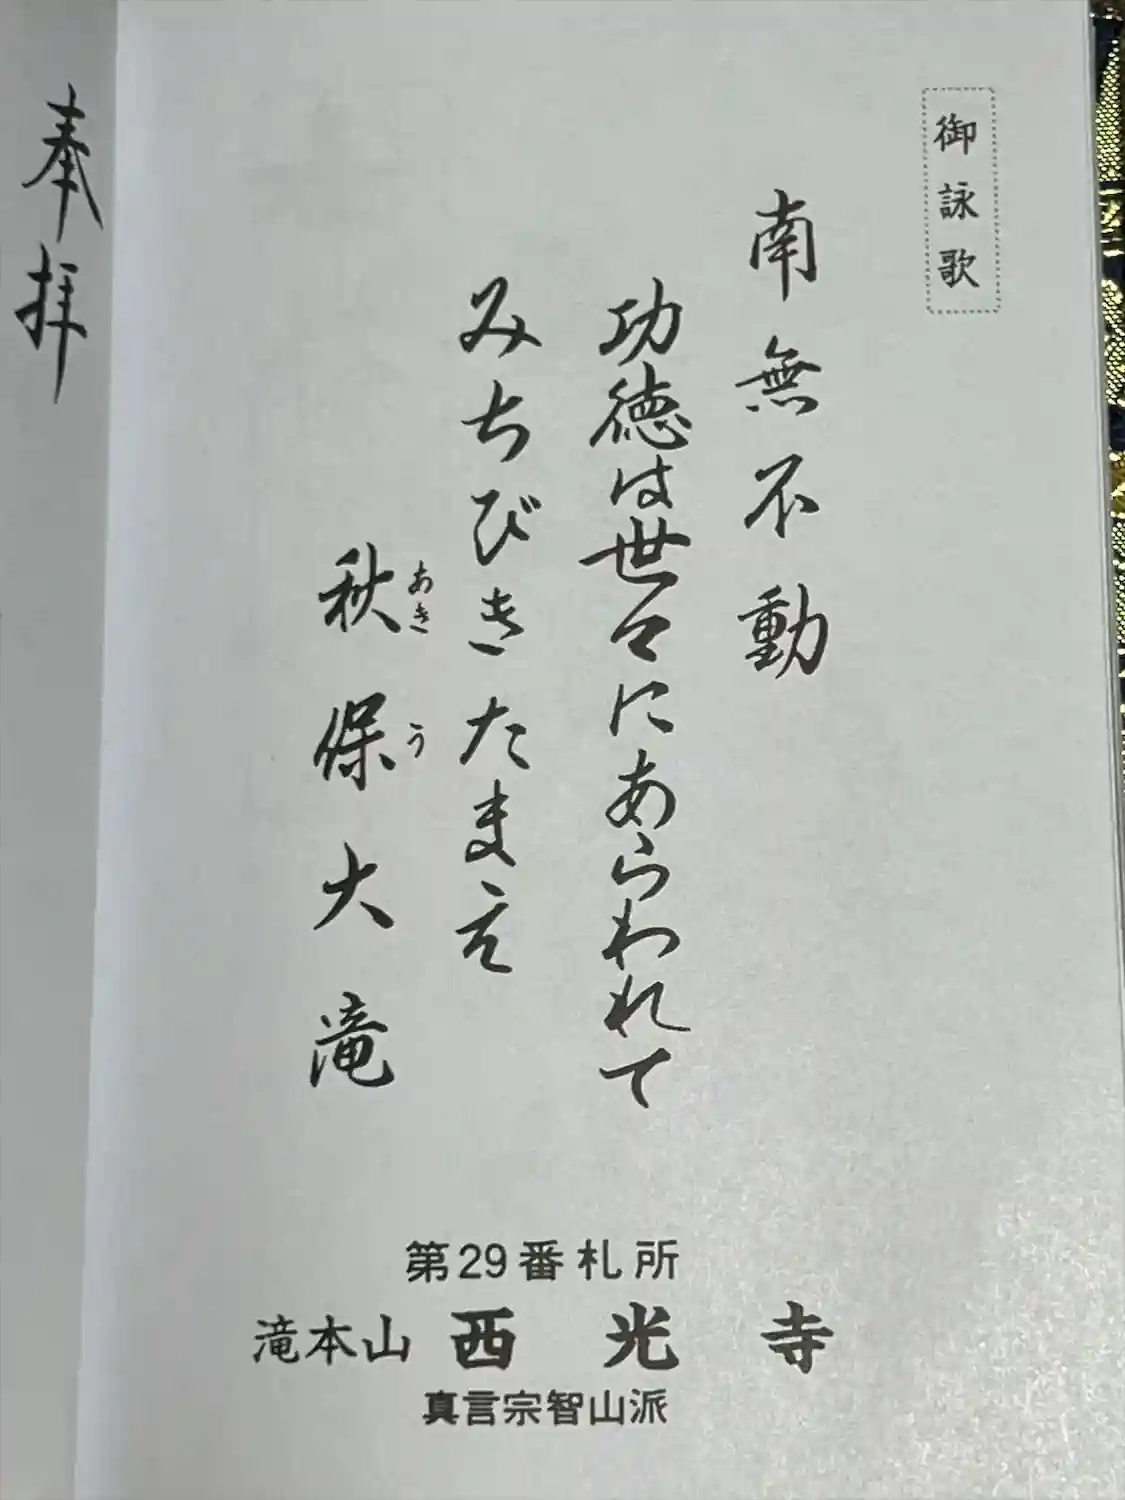 御詠歌
南無不動
功徳は世々にあらわれて
みちびきたまえ
秋保大滝
あき う
第29番札所
滝本山 西光寺
真言宗智山派
奉拝